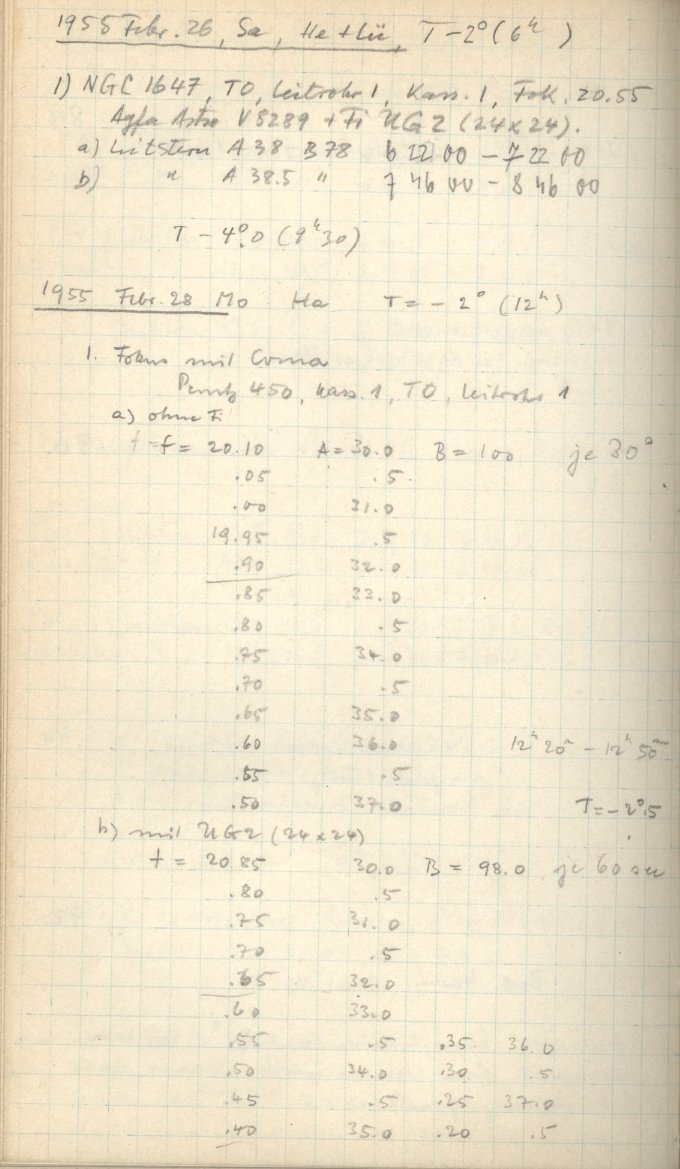 1955 Febr. 26, Sa, He + Lü, T -2° (6ʰ)
1) NGC 1647, TO, Leitrohr 1, Kass. 1, Fok. 20.55
Agfa Astro V 8289 + Fi UG2 (24x24).
a) Leitstern A 38 B 78 6 22 00 - 7 22 00
b) " A 38.5 " 7 46 00 - 8 46 00
T - 4°.0 (9ʰ30)
1955 Febr. 28 Mo Ha T = - 2° (12ʰ)
1. Fokus mit Coma
450, Kass. 1, TO, Leitrohr 1
a) ohne Fi
f = 20.10 A = 30.0 B = 100 je 30ˢ
.05 .5
.00 31.0
19.95 .5
.90 32.0
.85 33.0
.80 .5
.75 34.0
.70 .5
.65 35.0
.60 36.0 12ʰ 20ᵐ - 12ʰ 50ᵐ
.55 .5
.50 37.0 T = -2°.5
b) mit UG2 (24x24)
f = 20.85 30.0 B = 98.0 je 60 sec
.80 .5
.75 31.0
.70 .5
.65 32.0
.60 33.0
.55 .5 .35 36.0
.50 34.0 .30 .5
.45 .5 .25 37.0
.40 35.0 .20 .5